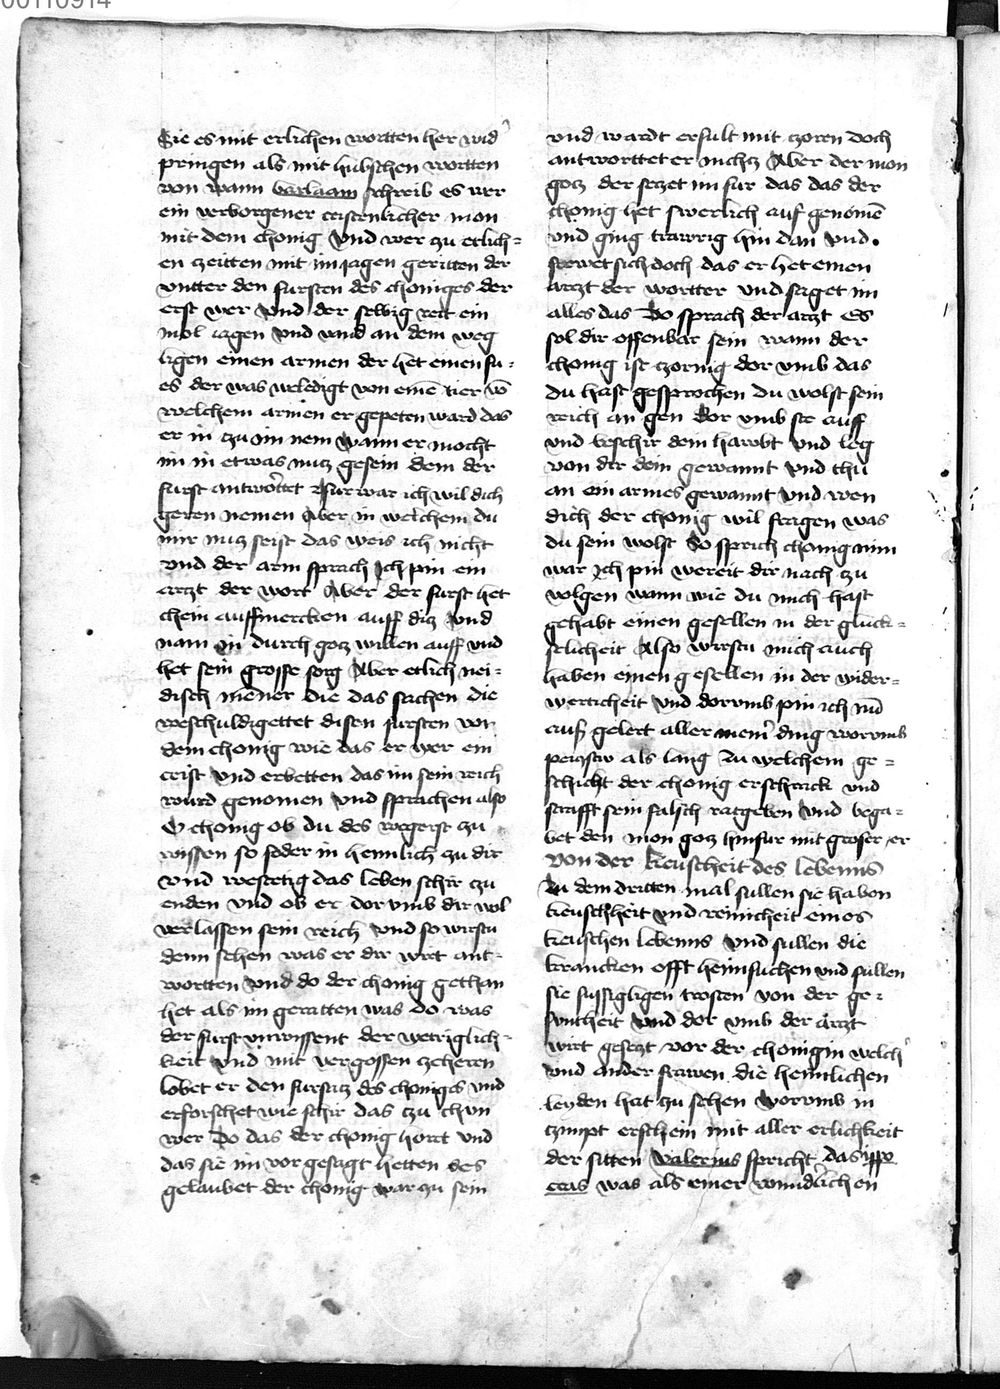 00110914
Sie es mit erlichen wortten her wid'
pringen als mit hubschen wortten
von wann barlaam schreib es wer
ein verborgener cristenlicher mon
mit dem chonig Vnd wer zu etlich=
en zeitten mit im jagen geritten der
vntter den fursten des choniges der
erst wer Vnd der selbig reit ein
mol jagen Vnd vand an dem weg
ligen einen armen der het einen fu=
es der was veledigt von eine tier vō
welchem armen er gepeten ward das
er in czu im nem Wann er mocht
im in etwas nutz gesein dem der
furst antwortet Furwar ich wil dich
geren nemen Aber in welchem du
mir nutz seist das weis ich nicht
vnd der arm sprach Ich pin ein
arzt der wort Aber der furst het
chein auffmercken auff ditz Vnd
nam in durch gotz willen auff vnd
het sein grosse sorg Aber etlich nei=
disch mener Die das sachen die
weschuldigettet disen fursten vor
dem chonig wie das er wer ein
crist Vnd erbetten das im sein reich
wurd genomen Vnd sprachen also
O chonig ob du des wegerst zu
wissen so foder in heimlich zu dir
vnd westetig das leben schir zu
enden vnd ob er dor vmb dir wol
verlassen sein reich Vnd so wirstu
denn sehen was er dir wirt ant=
wortten Vnd do der chonig gethan
het als im geratten was Do was
der furst vnwissent der wetriglich=
keit Vnd mit vergossen zcheren
lobet er den fursatz des choniges vnd
erforschet wie schir das czu thun
wer Do das der chonig horrt vnd
das sie im vor gesagt hetten des
gelaubet der chonig war zu sein
vnd wardt erfult mit zoren Doch
antworttet er nichtz Aber der mon
gotz der setzet im fur das das der
chonig het swerlich auf genomē
vnd ging trawrig hin dan Vnd
frewet sich doch das er het einen
arzt der wortter Vnd saget im
alles das Do sprach der arzt Es
sol dir offenbar sein wann der
chonig ist czornig dor vmb das
du hast gesprochen du wolst sein
reich an gen Dor vmb ste auff
vnd beschir dem hawbt Vnd leg
von dir dein gewannt Vnd thu
an ein armes gewannt Vnd wen
dich der chonig wil fragen was
du sein wolst So sprich chonig nim
war Ich pin wereit dir nach zu
volgen wann wie du mich hast
gehabt einen gesellen in der gluck=
selicheit Also wirstu mich auch
haben einen gesellen in der wider=
werticheit Vnd dorvmb pin ich nū
auß gelert aller mein' ding worvmb
peitstu als lang Zu welchem ge=
schicht der chonig erschrack vnd
strafft sein falsch ratgeben Vnd bega=
bet den mon gotz hinfur mit groser er
Von der Keuscheit des lebenns
Zu dem dritten mal sullen sie haben
keuschheit Vnd reinicheit eines
keuschen lebenns Vnd sullen die
krancken offt heimsuchen vnd sullen
sie sussigligen trosten von der ge=
suntheit Vnd dor vmb der Arzt
wirt gesetzt vor der chonigin welch'
vnd ander frawen die heimlichen
leyden hat zu sehen Worvmb in
czimpt erschein mit aller erlichkeit
der sitten Valerius spricht das ippo
cras was als einer wunderlichen